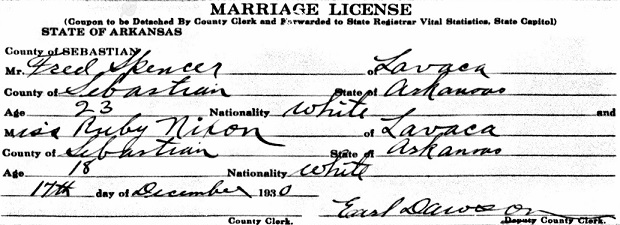 MARRIAGE LICENSE
(Coupon to be Detached By County Clerk and Forwarded to State Registrar Vital Statistics, State Capitol)
STATE OF ARKANSAS
County of SEBASTIAN
Mr. Fred Spencer of Lavaca
County of Sebastian State of Arkansas
Age 23 Nationality White and
Miss Ruby Nixon of Lavaca
County of Sebastian State of Arkansas
Age 18 Nationality White
17th day of December 1930
Earl Dawson
County Clerk. Deputy County Clerk.